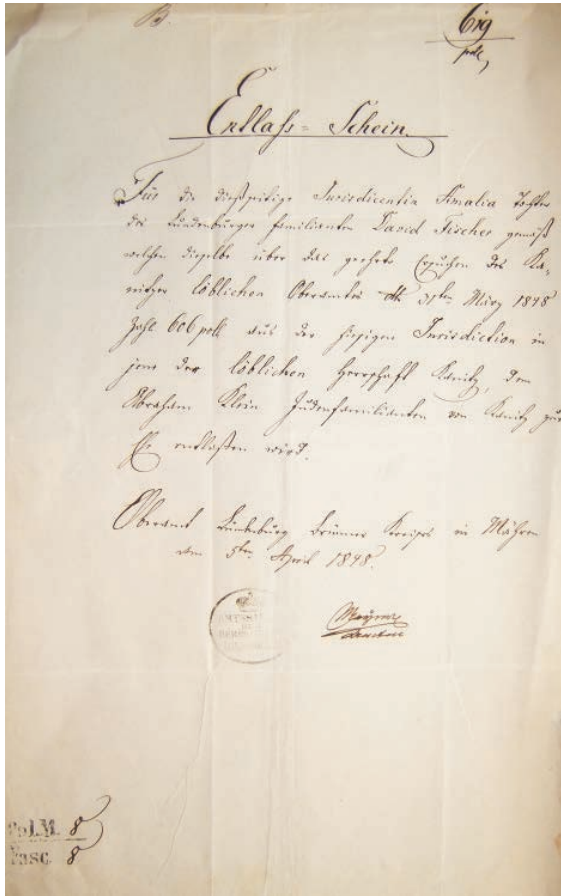 B.
619
poll,
Entlass= Schein.
Für die diesseitige Jurisdicentin Amalia Tochter
des Lundenburger Familianten David Fischer gemäß
welchen dieselbe über das geehrte Ersuchen des Ka-
nitzer löblichen Oberamtes dto 31ten März 1848
Zahl 606 poll aus der hiesigen Jurisdiction in
jene der löblichen Herrschaft Kanitz, dem
Abraham Klein Judenfamilianten von Kanitz zur
Ehe entlaßen wird.
Oberamt Lundenburg Brünner Kreises in Mähren
am 5ten April 1848.
AMTSS
DER
Pol.M. 8
Fasc. 8